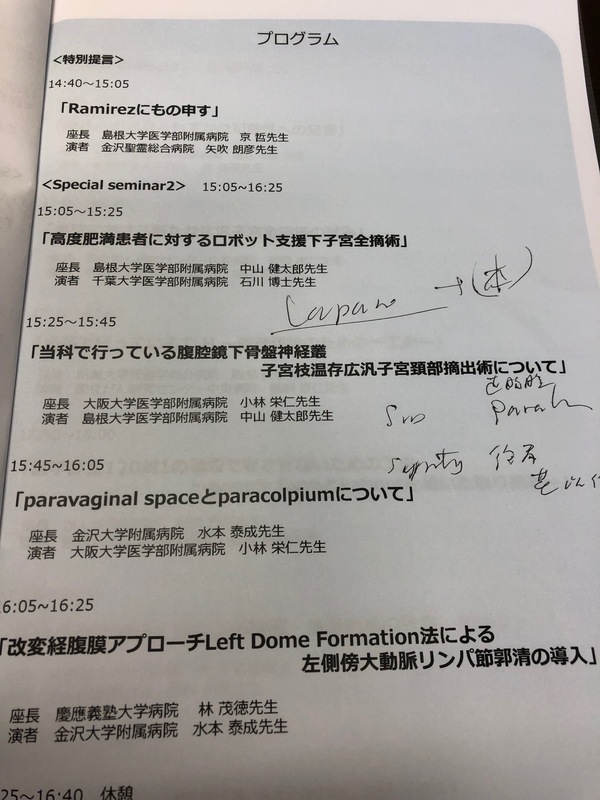 プログラム
<特別提言>
14:40～15:05
「Ramirezにもの申す」
座長　島根大学医学部附属病院　京 哲先生
演者　金沢聖霊総合病院　矢吹 朗彦先生
<Special seminar2>　15:05~16:25
15:05~15:25
「高度肥満患者に対するロボット支援下子宮全摘術」
座長　島根大学医学部附属病院　中山 健太郎先生
演者　千葉大学医学部附属病院　石川 博士先生
15:25～15:45
「当科で行っている腹腔鏡下骨盤神経叢
子宮枝温存広汎子宮頚部摘出術について」
座長　大阪大学医学部附属病院　小林 栄仁先生
演者　島根大学医学部附属病院　中山 健太郎先生
15:45~16:05
「paravaginal spaceとparacolpiumについて」
座長　金沢大学附属病院　水本 泰成先生
演者　大阪大学医学部附属病院　小林 栄仁先生
16:05~16:25
「改変経腹膜アプローチLeft Dome Formation法による
左側傍大動脈リンパ節郭清の導入」
座長　慶應義塾大学病院　林 茂徳先生
演者　金沢大学附属病院　水本 泰成先生
25~16:40　休憩